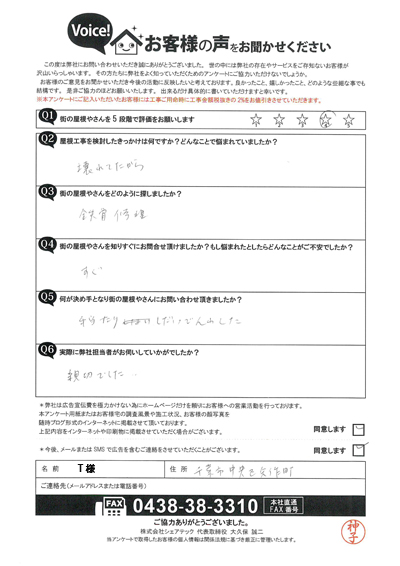 Voice!
お客様の声をお聞かせください
この度は弊社にお問い合わせいただき誠にありがとうございました。世の中には弊社の存在やサービスをご存知ないお客様が
沢山いらっしゃいます。その方たちに弊社をよく知っていただくためのアンケートにご協力いただけないでしょうか。
お客様のご意見をお聞かせいただき今後の活動に反映したいと考えております。良かったこと、嬉しかったこと、どのような些細な事でも
結構です。是非ご協力のほどお願いいたします。出来るだけ具体的に書いていただけますと幸いです。
※本アンケートにご記入いただいたお客様には工事ご用命時に工事金額税抜きの2%をお値引きさせていただきます。
Q1 街の屋根やさんを5段階で評価をお願いします
Q2 屋根工事を検討したきっかけは何ですか？どんなことで悩まれていましたか？
壊れてたから
Q3 街の屋根やさんをどのように探しましたか？
鉄骨修理
Q4 街の屋根やさんを知りすぐにお問合せ頂けましたか？もし悩まれたとしたらどんなことがご不安でしたか？
すぐ
Q5 何が決め手となり街の屋根やさんにお問い合わせ頂きましたか？
手当たりしだいでんわした
Q6 実際に弊社担当者がお伺いしていかがでしたか？
親切でした
＊弊社は広告宣伝費を極力かけない為にホームページだけを頼りにお客様への営業活動を行っております。
本アンケート用紙またはお客様宅の調査風景や施工状況、お客様の顔写真を
随時ブログ形式のインターネットに掲載させて頂いております。
上記内容をインターネットや印刷物に掲載させていただく場合がございます。
同意します
＊今後、メールまたは SMS で広告を含むご連絡をさせていただくことがございます。
同意します
名前 T様 住所 千葉市中央区
ご連絡先(メールアドレスまたは電話番号)
FAX 0438-38-3310 本社直通 FAX番号
ご協力ありがとうございました。
株式会社シェアテック 代表取締役 大久保 誠二
当アンケートで取得したお客様の個人情報は関係法規に基づき厳正に管理いたします。
神子